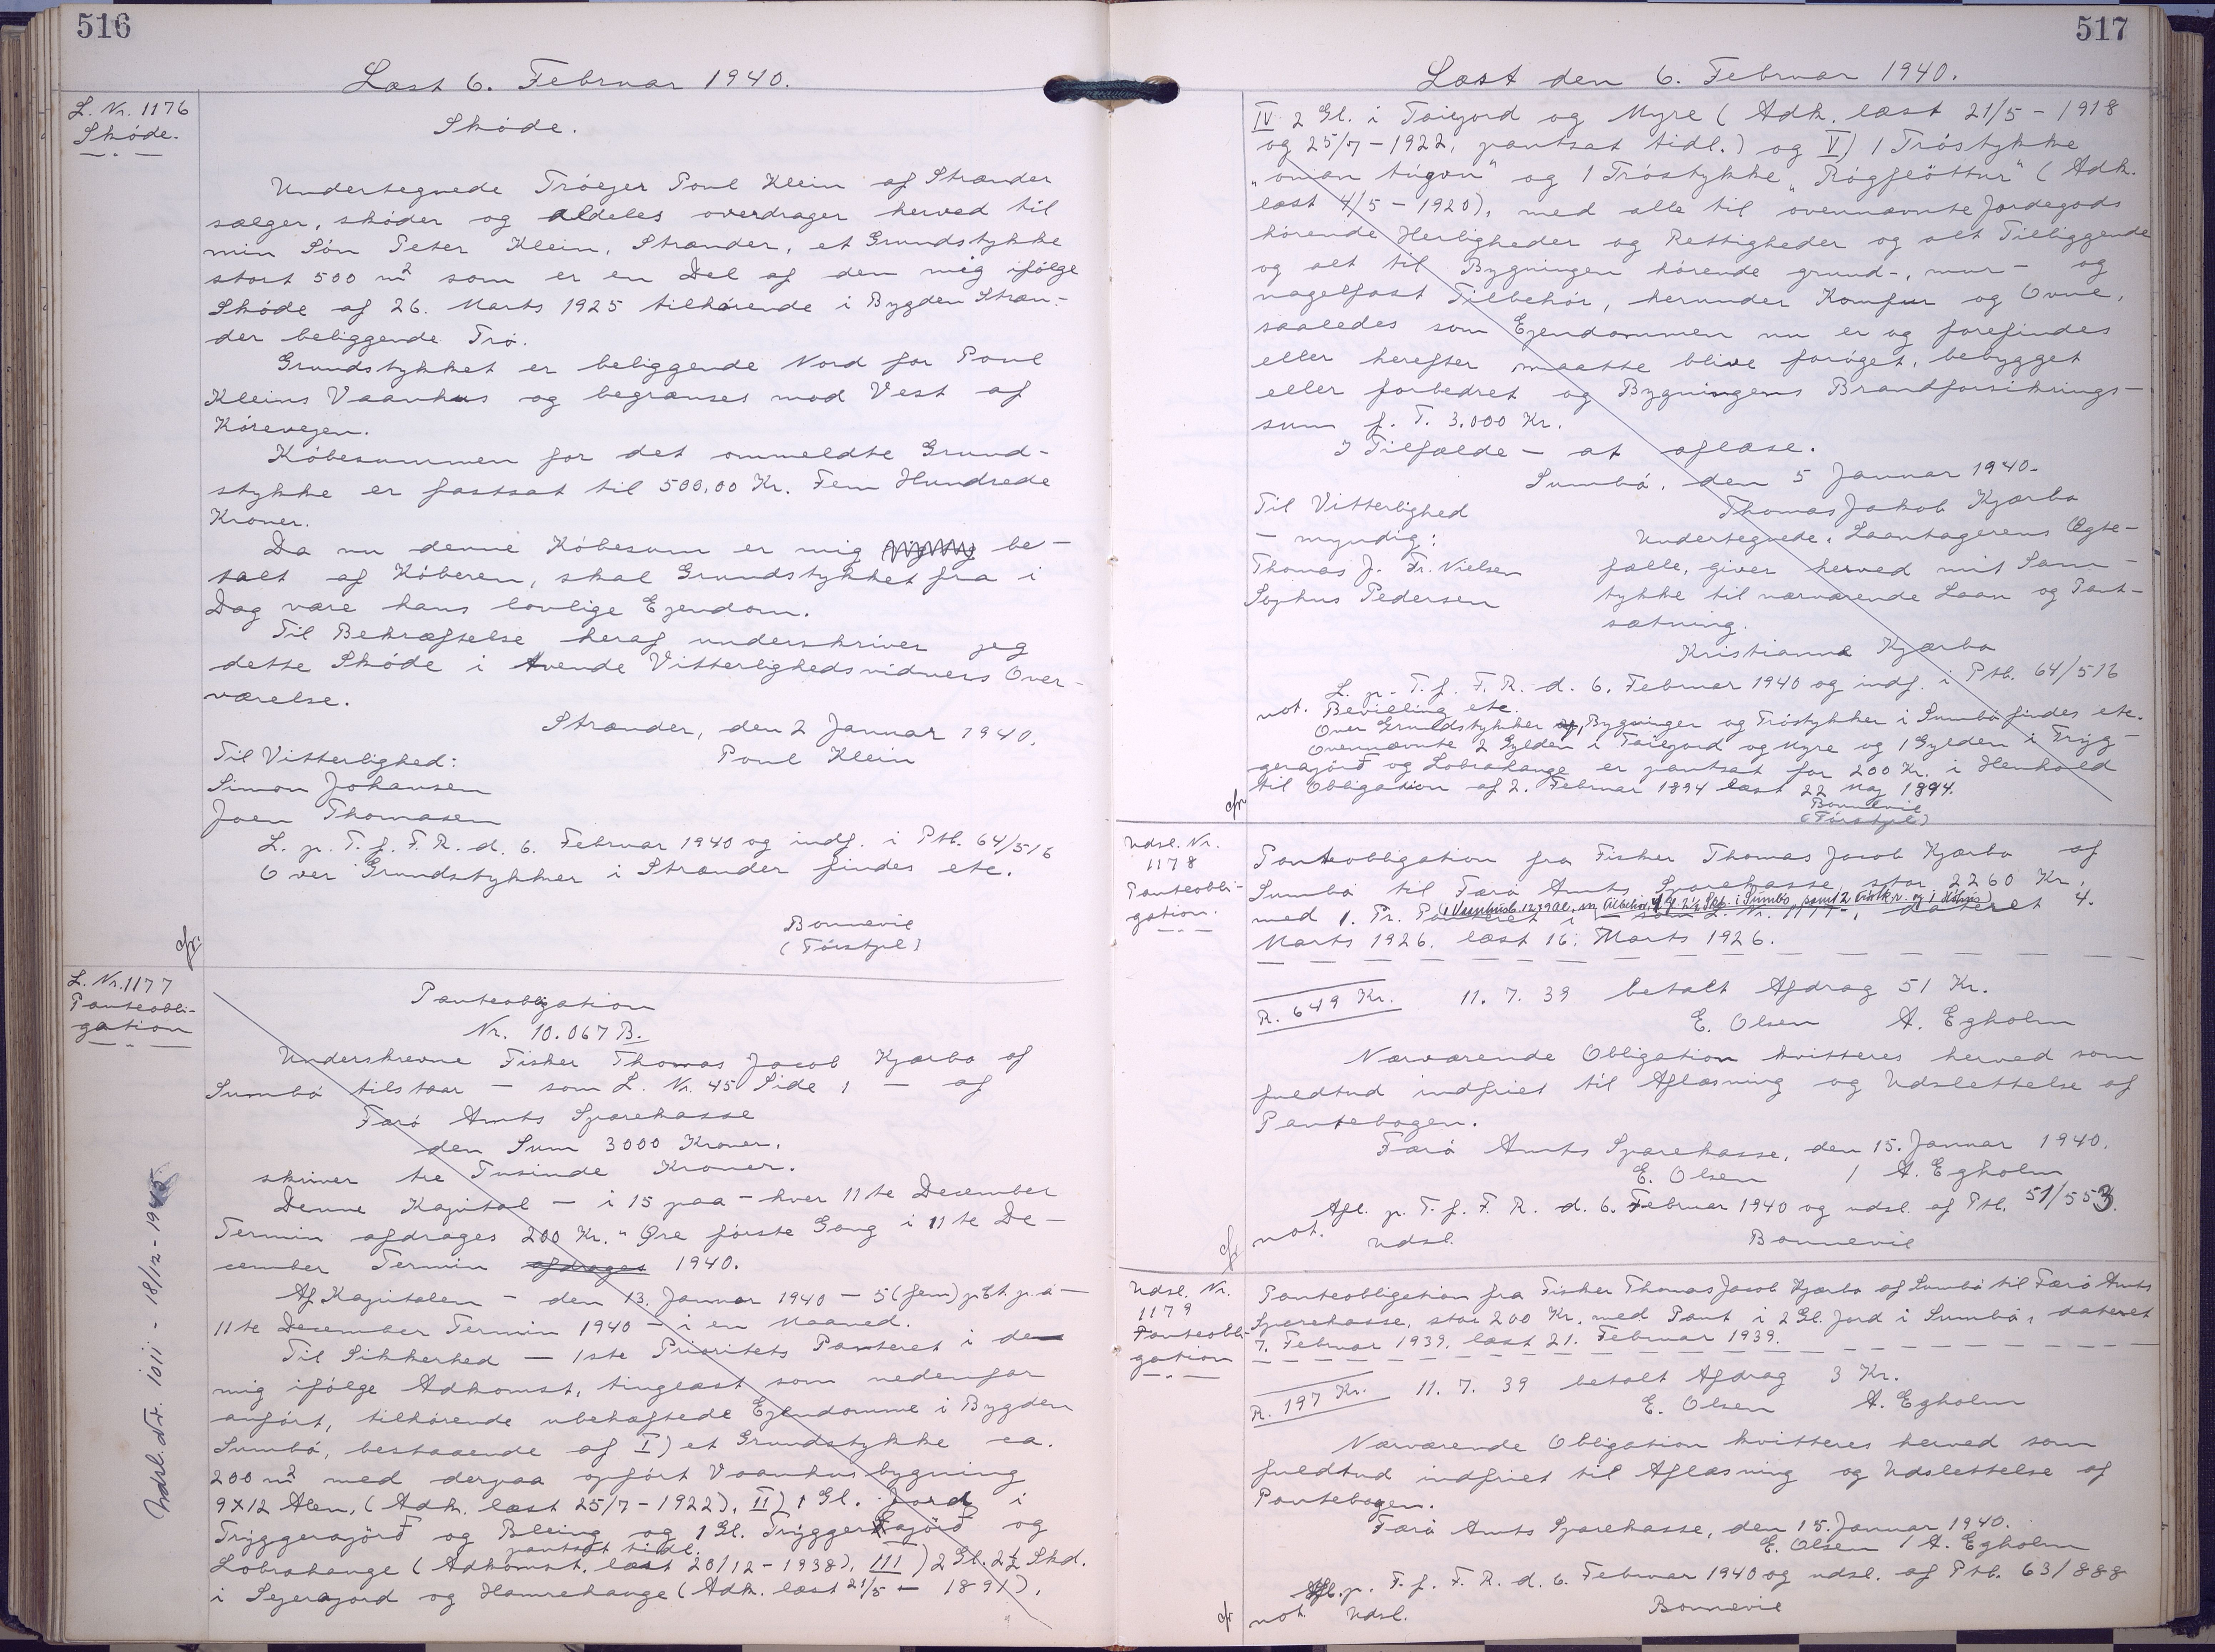 516
Læst 6. Februar 1940.
L. Nr. 1176
Skóde.
Skóde.
Undertegnede Tróejer Poul Klein af Strænder
sælger, skóder og aldeles overdrager herved til
min Són Peter Klein, Strænder, et Grundstykke
stort 500 m² som er en Del af den mig ifólge
Skóde af 26. Marts 1925 tilhórende i Bygden Stræn-
der beliggende Tró.
Grundstykket er beliggende Nord for Poul
Kleins Vaanhus og begrænses mod Vest af
Kórevejen.
Kóbesummen for det ommeldte Grund-
stykke er fastsat til 500,00 Kr. Fem Hundrede
Kroner.
Da nu denne Kóbesum er mig be-
talt af Kóberen, skal Grundstykket fra i
Dag være hans lovlige Ejendom.
Til Bekræftelse heraf underskriver jeg
dette Skóde i tvende Vitterlighedsvidners Over-
værelse.
Strænder, den 2 Januar 1940.
Til Vitterlighed: Poul Klein
Simon Johansen
Joen Thomasen
L. p. T. f. F. R. d. 6. Februar 1940 og indf. i Ptb. 64/516
Over Grundstykker i Strænder findes etc.
Bonnevie
(Tórstpl)
cfr.
L. Nr. 1177
Panteobli-
gation
Panteobligation
Nr. 10.067 B.
Underskrevne Fisker Thomas Jacob Kjærbo af
Sumbó tilstaar - som L. Nr. 45 Side 1 - af
Færó Amts Sparekasse
den Sum 3000 Kroner.
skriver tre Tusinde Kroner.
Denne Kapital - i 15 paa - hver 11te December
Termin afdrages 200 Kr. " Øre fórste Gang i 11te De-
cember Termin afdrages 1940.
Af Kapitalen - den 13. Januar 1940 - 5 (fem) pCt. p. a -
11te December Termin 1940 - i en Maaned.
Til Sikkerhed - 1ste Prioritets Panteret i de
mig ifólge Adkomst, tinglæst som nedenfor
anfórt, tilhórende ubehæftede Ejendomme i Bygden
Sumbó, bestaaende af I) et Grundstykke ca.
200 m² med derpaa opfórt Vaanhusbygning
9x12 Alen, (Adk. læst 25/7 - 1922), II) 1 Gl. Jord i
Tryggerajörð og Bleing og 1 Gl. Tryggerajörð og
pantsat tidl.
Lobrahange (Adkomst. læst 20/12 - 1938), III) 2 Gl. 2½ Skd.
i Sejerajord og Hamrehange (Adk. læst 21/5 - 1891),
Udsl. Nr. 1011 - 18/12 - 1945
517
Læst den 6. Februar 1940.
IV 2 Gl. i Toiejord og Myre (Adk. læst 21/5 - 1918
og 25/7 - 1922, pantsat tidl.) og V) 1 Tróstykke
"oman túgvu" og 1 Tróstykke "Rógfløttur" (Adk.
læst 4/5 - 1920), med alle til ovennævnte Jordegods
hórende Herligheder og Rettigheder og alt Tilliggende
og alt til Bygningen hórende grund-, mur- og
nagelfast Tilbehór, herunder Komfur og Ovne,
saaledes som Ejendommen nu er og forefindes
eller herefter maatte blive foróget, bebygget
eller forbedret og Bygningens Brandforsikrings-
sum f. T. 3.000 Kr.
I Tilfælde - at aflæse.
Sumbó, den 5 Januar 1940.
Til Vitterlighed Thomas Jakob Kjærbo
- myndig: Undertegnede, Laantagerens Ægte-
Thomas J. Fr. Nielsen fælle, giver herved mit Sam-
Sophus Pedersen tykke til nærværende Laan og Pant-
sætning.
Kristianna Kjærbo
L. p. T. f. F. R. d. 6. Februar 1940 og indf. i Ptb. 64/516
not. Bevilling etc.
Over Grundstykker Bygninger og Tróstykker i Sumbó findes etc.
Ovennævnte 2 Gylden i Toiejord og Myre og 1 Gylden i Tryg-
gerajörð og Lobrahange er pantsat for 200 Kr. i Henhold
til Obligation af 2. Februar 1894 læst 22 Maj 1894.
Bonnevie
(Tórstpl)
cfr.
Udsl. Nr.
1178
Panteobli-
gation.
Panteobligation fra Fisker Thomas Jacob Kjærbo af
Sumbó til Færó Amts Sparekasse, stor 2260 Kr.,
med 1. Pr. Panteret i - som L. Nr. 1177 -, dateret 4.
Marts 1926, læst 16. Marts 1926.
R. 649 Kr. 11. 7. 39 betalt Afdrag 51 Kr.
E. Olsen A. Egholm
Nærværende Obligation kvitteres herved som
fuldtud indfriet til Aflæsning og Udslettelse af
Pantebogen.
Færó Amts Sparekasse, den 15. Januar 1940.
E. Olsen / A. Egholm
Afl. p. T. f. F. R. d. 6. Februar 1940 og udsl. af Ptb. 51/553.
not. Udsl. Bonnevie
cfr
Udsl. Nr.
1179
Panteobli-
gation
Panteobligation fra Fisker Thomas Jacob Kjærbo af Sumbó til Færó Amts
Sparekasse, stor 200 Kr. med Pant i 2 Gl. Jord i Sumbó, dateret
7. Februar 1939, læst 21. Februar 1939.
R. 197 Kr. 11. 7. 39 betalt Afdrag 3 Kr.
E. Olsen A. Egholm
Nærværende Obligation kvitteres herved som
fuldtud indfriet til Aflæsning og Udslettelse af
Pantebogen.
Færó Amts Sparekasse, den 15. Januar 1940.
E. Olsen / A. Egholm
Afl. p. T. f. F. R. d. 6. Februar 1940 og udsl. af Ptb. 63/888
not. Udsl. Bonnevie
cfr